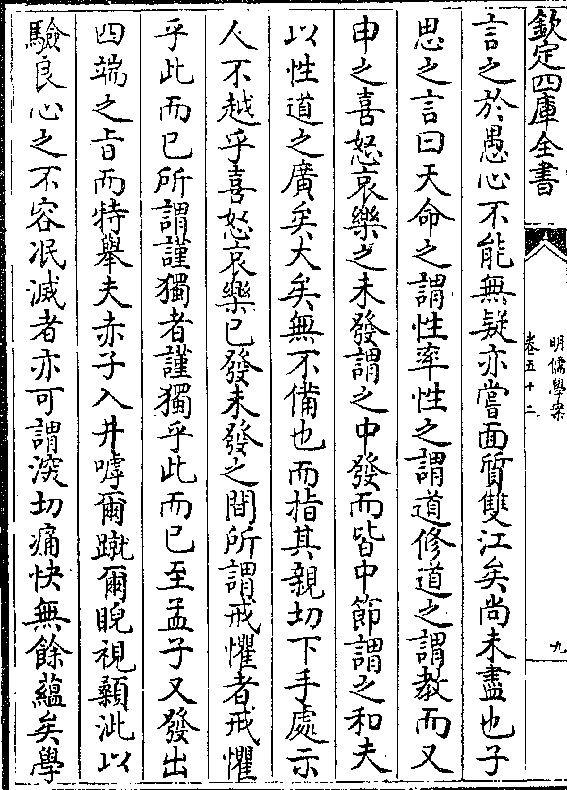 欽定四庫全書
明儒學案
卷五十二
九
言之於愚心不能無疑亦嘗面質雙江矣尚未盡也子
思之言曰天命之謂性率性之謂道修道之謂教而又
申之喜怒哀樂之未發謂之中發而皆中節謂之和夫
以性道之廣矣大矣無不備也而指其親切下手處示
人不越乎喜怒哀樂已發未發之間所謂戒懼者戒懼
乎此而已所謂謹獨者謹獨乎此而已至孟子又發出
四端之旨而特舉夫赤子入井嘑爾蹴爾睨視顙泚以
驗良心之不容泯滅者亦可謂深切痛快無餘蘊矣學